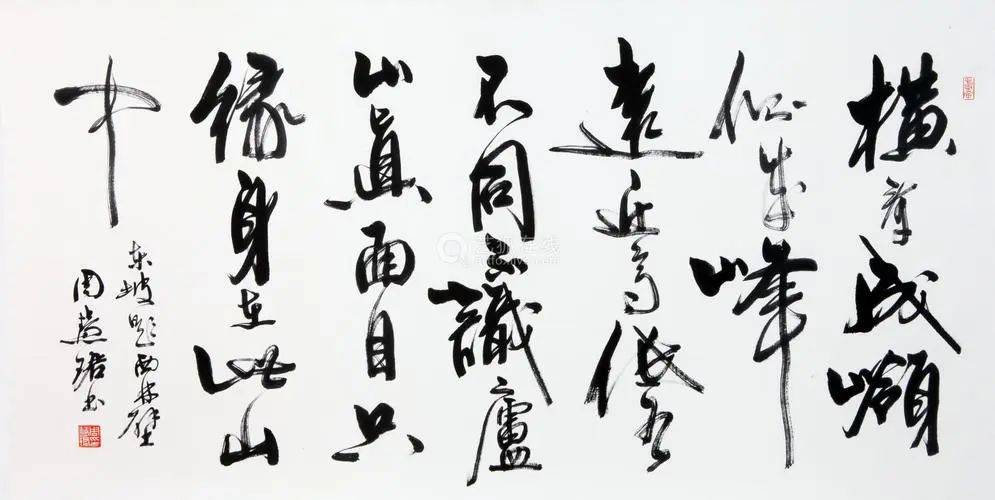 横看成嶺
侧成峰
遠近高低各
不同不識廬
山真面目只
緣身在此山
中
东坡题西林壁
周慧珺书